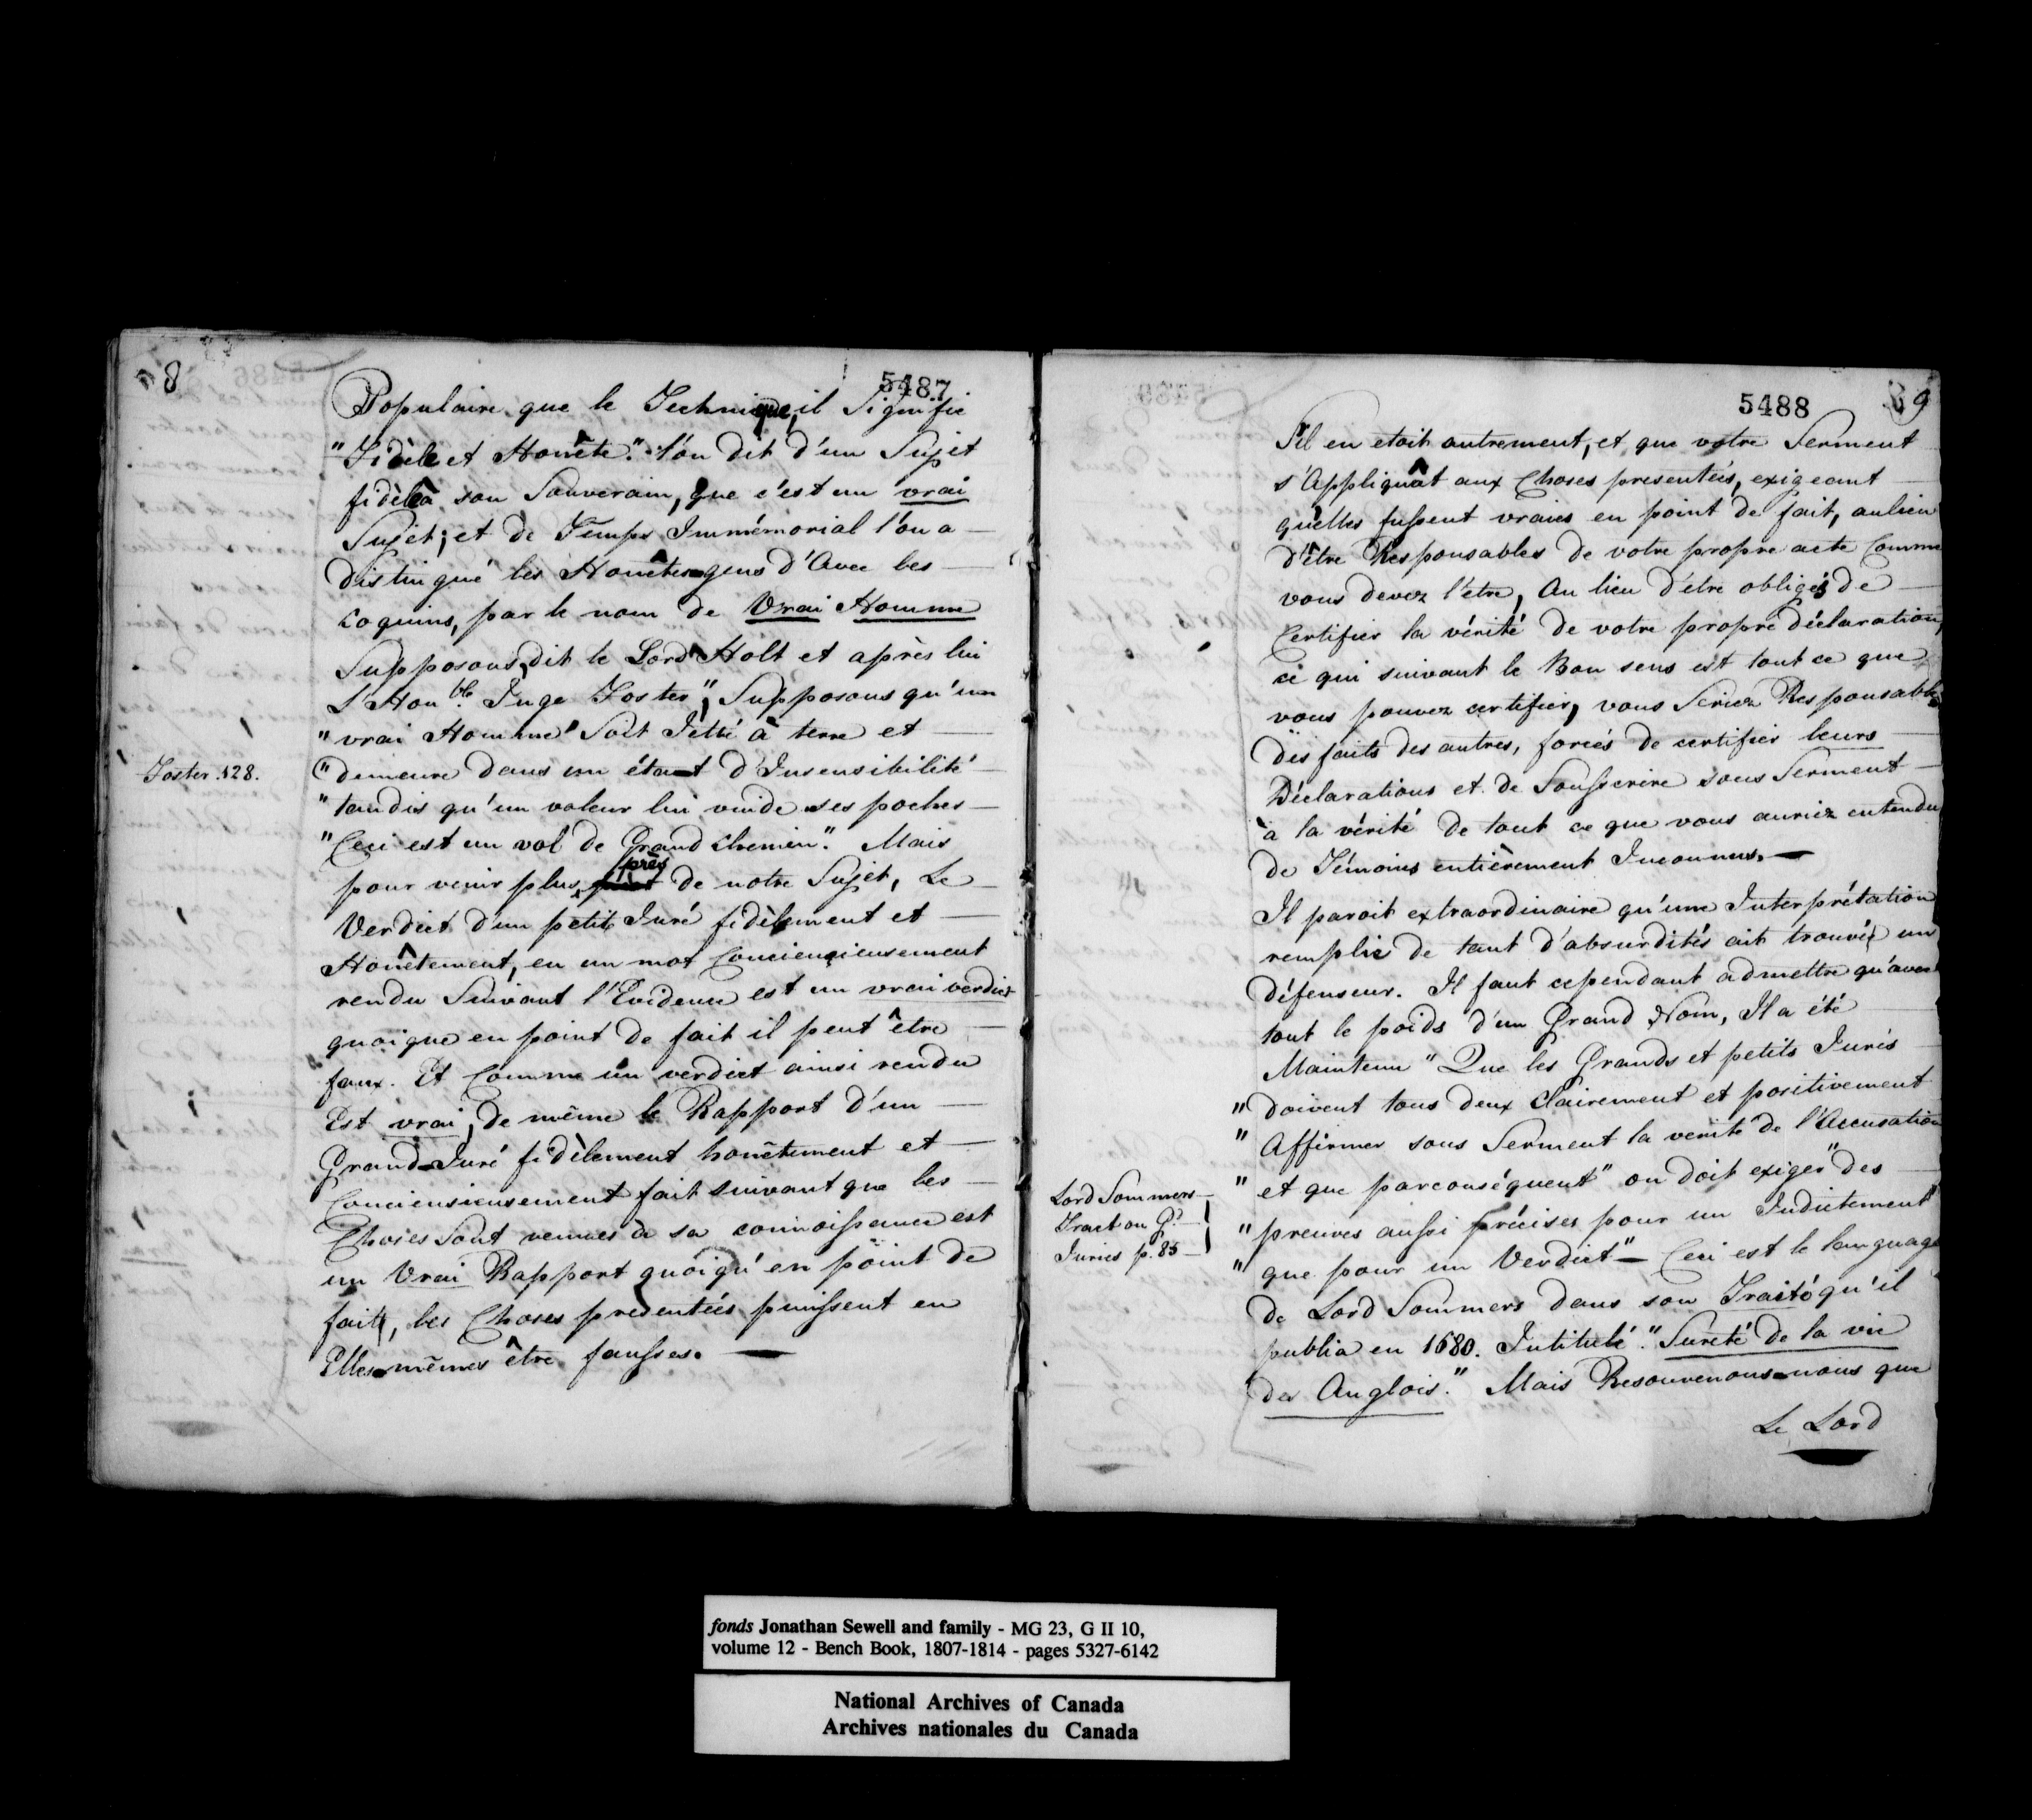 8
5487
Populaire que le Technique, il Signifie
"Fidèle et Honête." l'on dit d'un Sujet
fidèle à son Souverain, que c'est un vrai
Sujet; et de Temps Immémorial l'on a
distingué les Honêtes-gens d'Avec les
coquins, par le nom de Vrai Homme
Supposons, dit le Lord Holt et après lui
L'Honble. Juge Foster, "Supposons qu'un
"vrai Homme" Soit Jetté à terre et
Foster. 128.
"demeure dans un état d'Insensibilité
"tandis qu'un voleur lui vuide ses poches
"Ceci est un vol de Grand Chemin." Mais
pour venir plus près de notre Sujet, Le
Verdict d'un petit Juré fidèlement et
Honêtement, en un mot Conciencieusement
rendu Suivant l'Evidence est un vrai verdict
quoique en point de fait il peut être
faux. Et Comme un verdict ainsi rendu
Est vrai, de même le Rapport d'un
Grand-Juré fidèlement honêtement et
Conciensieusement fait suivant que les
Choses Sont venues à sa connoissance est
un Vrai Rapport quoiqu'en point de
fait, les Choses presentées puissent en
Elles-mêmes être fausses.
5488
9
S'il en etoit autrement, et que votre Serment
s'Appliquât aux Choses presentées, exigeant
qu'elles fussent vraies en point de fait, aulieu
d'être Responsables de votre propre acte Comme
vous devez l'être, Au lieu d'être obligés de
Certifier la vérité de votre propre Déclaration,
ce qui suivant le Bon sens est tout ce que
vous pouvez certifier, vous Seriez Responsables
des faits des autres, forcés de certifier leurs
Déclarations et de Soussscrire sous Serment
à la vérité de tout ce que vous auriez entendu
de Témoins entièrement Inconnus.
Il paroit extraordinaire qu'une Interprétation
remplie de tant d'absurdités ait trouvée un
défenseur. Il faut cependant admettre qu'avec
tout le poids d'un Grand Nom, Il a été
Maintenu "Que les Grands et petits Jurés
"doivent tous deux Clairement et positivement
"Affirmer sous Serment la verité de l'Accusation
"et que parconséquent" on doit exiger "des
Lord Sommers
Tract on Gd
Juries p. 85
"preuves aussi précises pour un Indictement
"que pour un Verdict" - Ceci est le language
de Lord Sommers dans son Traité qu'il
publia en 1680. Intitulé. "Sureté de la vie
des Anglois." Mais Resouvenons-nous que
Le Lord
fonds Jonathan Sewell and family - MG 23, G II 10,
volume 12 - Bench Book, 1807-1814 - pages 5327-6142
National Archives of Canada
Archives nationales du Canada